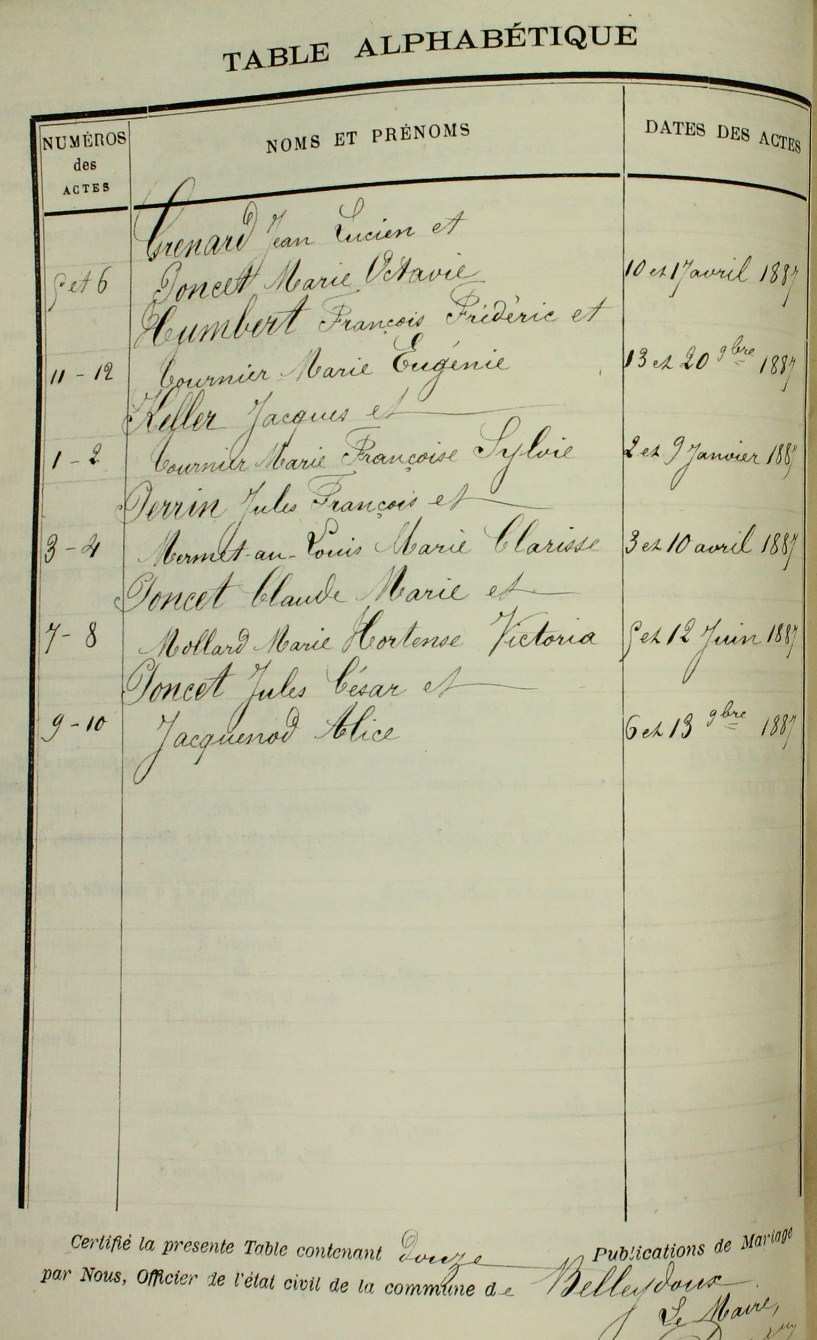 TABLE ALPHABÉTIQUE
NUMÉROS des ACTES NOMS ET PRÉNOMS DATES DES ACTES
Grenard Jean Lucien et
5 et 6 Poncet Marie Octavie 10 et 17 avril 1887
Humbert François Frédéric et
11 - 12 Tournier Marie Eugénie 13 et 20 9bre 1887
Keller Jacques et
1 - 2 Tournier Marie Françoise Sylvie 2 et 9 Janvier 1887
Perrin Jules François et
3 - 4 Mermet-au-Louis Marie Clarisse 3 et 10 avril 1887
Poncet Claude Marie et
7 - 8 Mollard Marie Hortense Victoria 5 et 12 Juin 1887
Poncet Jules César et
9 - 10 Jacquenod Alice 6 et 13 9bre 1887
Certifié la presente Table contenant douze Publications de Mariage
par Nous, Officier de l'état civil de la commune de Belleydoux
Le Maire,